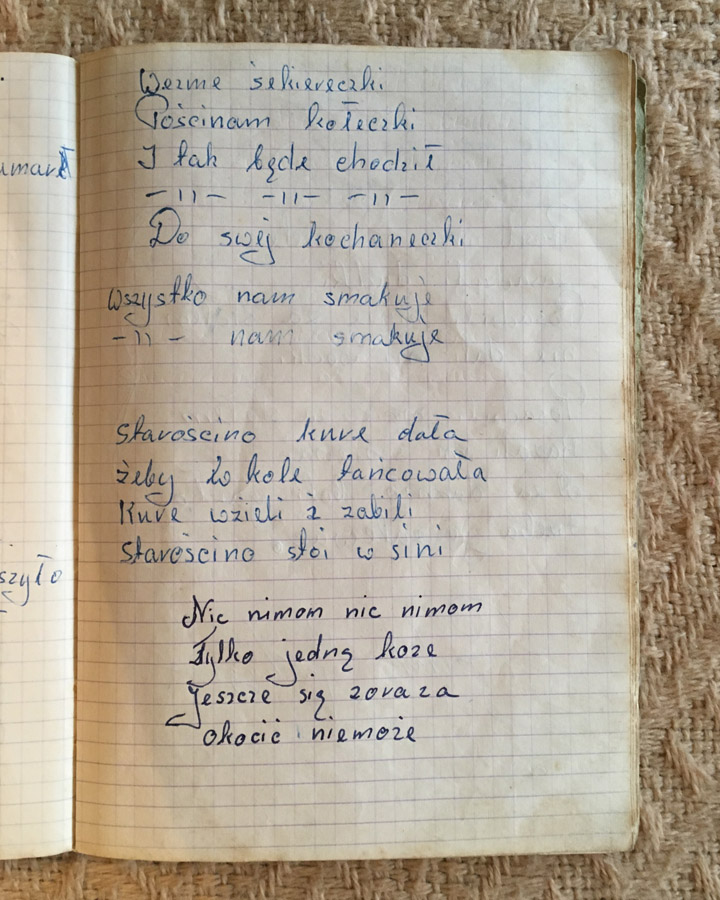 umarł
szyło
Wezme siekiereczki
Pościnam kołeczki
I tak będe chodził
-11- -11- -11-
Do swéj kochaneczki
Wszystko nam smakuję
-11- nam smakuję
Starościno kure dała
żeby w kole tańcowała
Kure wzieli i zabili
Starościno stoi w sini
Nic nimom nic nimom
Tylko jedną koze
jeszcze się zaraza
okocić niemoże